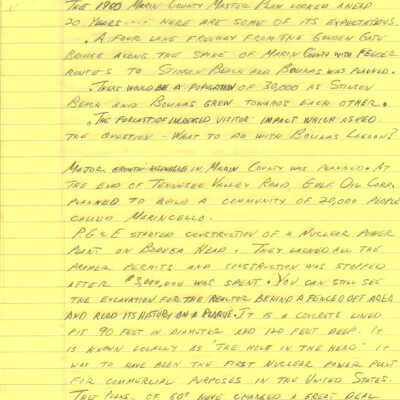 THE 1960 MARIN COUNTY MASTER PLAN LOOKED AHEAD
20 YEARS..... HERE ARE SOME OF ITS EXPECTATIONS.
. A FOUR LANE FREEWAY FROM THE GOLDEN GATE
BRIDGE ALONG THE SPINE OF MARIN COUNTY WITH FEEDER
ROUTES TO STINSON BEACH AND BOLINAS WAS PLANNED.
. THERE WOULD BE A POPULATION OF 30,000 AS STINSON
BEACH AND BOLINAS GREW TOWARDS EACH OTHER.
. THE FORCAST OF INCREASED VISITOR IMPACT WHICH ASKED
THE QUESTION - WHAT TO DO WITH BOLINAS LAGOON?
MAJOR GROWTH IN MARIN COUNTY WAS PLANNED. AT
THE END OF TENNESSEE VALLEY ROAD, GULF OIL CORP.
PLANNED TO BUILD A COMMUNITY OF 20,000 PEOPLE
CALLED MARINCELLO.
P.G&E STARTED CONSTRUCTION OF A NUCLEAR POWER
PLANT ON BODEGA HEAD. THEY LACKED ALL THE
PROPER PERMITS AND CONSTRUCTION WAS STOPPED
AFTER $3,000,000 WAS SPENT. YOU CAN STILL SEE
THE EXCAVATION FOR THE REACTOR BEHIND A FENCED OFF AREA
AND READ ITS HISTORY ON A PLAQUE. IT IS A CONCRETE LINED
PIT 90 FEET IN DIAMETER AND 120 FEET DEEP. IT
IS KNOWN LOCALLY AS "THE HOLE IN THE HEAD". IT
WAS TO HAVE BEEN THE FIRST NUCLEAR POWER PLANT
FOR COMMERCIAL PURPOSES IN THE UNITED STATES.
THE PLANS OF 60'S HAVE CHANGED A GREAT DEAL